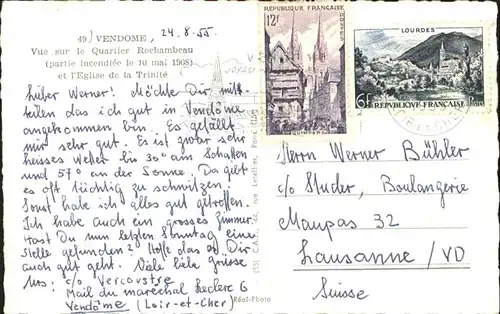 49) VENDOME, 24.8.55.
Vue sur le Quartier Rochambeau
(partie incendiée le 10 mai 1908)
et l'Eglise de la Trinité
Lieber Werner! Möchte Dir mit-
teilen das ich gut in Vendôme
angekommen bin. Es gefällt
mir sehr gut. Es ist zwar sehr
heisses Wetter bis 30° am Schatten
und 57° an der Sonne. Da gibt
es oft tüchtig zu schwitzen.
Sonst habe ich alles gut getroffen.
Ich habe auch ein grosses Zimmer.
Hast Du nun letzten Sonntag eine
Stelle gefunden? Hoffe das es Dir
auch gut geht. Viele liebe Grüsse
c/o Vercoustre
Mail du maréchal Leclerc 6
Vendôme (Loir-et-Cher)
Réal-Photo
RÉPUBLIQUE FRANÇAISE
12F
QUIMPER
LOURDES
6F RÉPUBLIQUE FRANÇAISE
Herrn Werner Bühler
c/o Studer, Boulangerie
Maupas 32
Lausanne/VD
Suisse